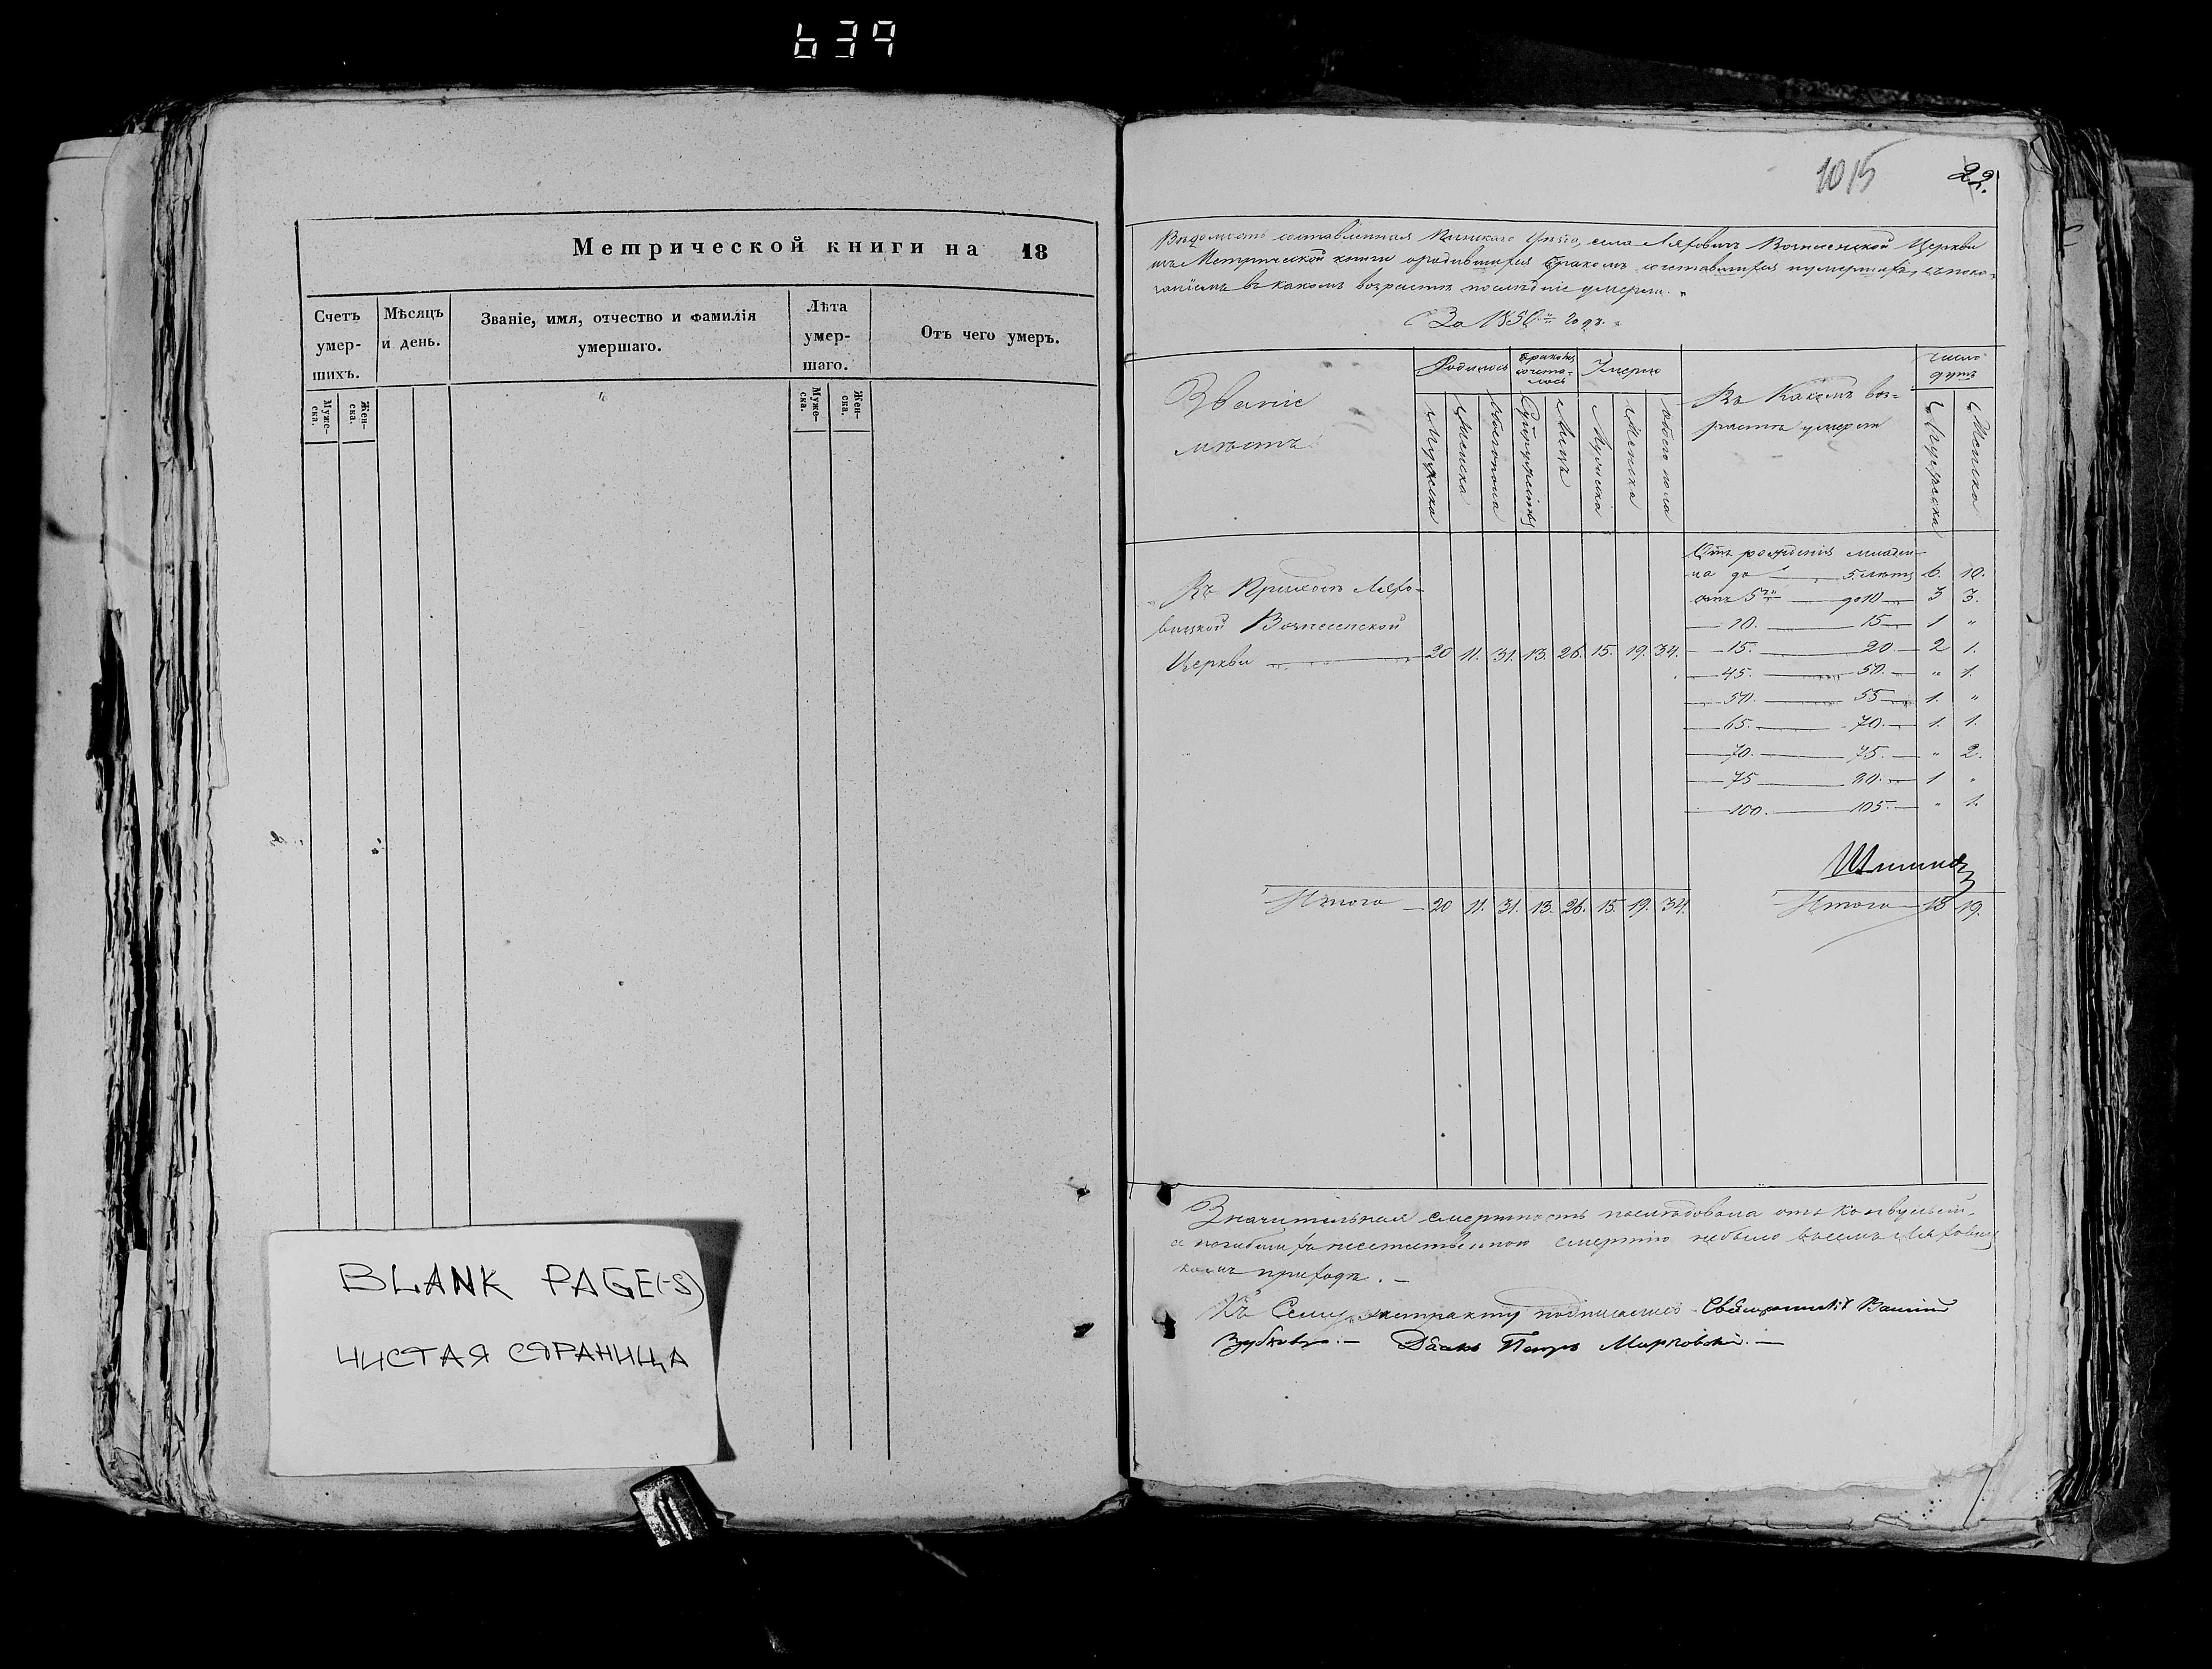 639
Метрической книги на 18
Счетъ умер- шихъ.
Мѣсяцъ и день.
Званіе, имя, отчество и фамилія умершаго.
Лѣта умер- шаго.
Отъ чего умеръ.
Муже- ска.
Жен- ска.
Муже- ска.
Жен- ска.
BLANK PAGE(-S)
ЧИСТАЯ СТРАНИЦА
1015
22.
Вѣдомость составленная Пинскаго Уѣзда, села Ляховичъ Вознесенской Церкви
изъ Метрической книги о родившихся бракомъ сочетавшихся и умершихъ, съ пока-
заніемъ въ какомъ возрастѣ послѣдніе умерли.
За годъ.
Званіе
мѣстъ
Родилось
Бракомъ сочета- лось
Умерло
Въ какомъ воз-
растѣ умерли
Число душъ
Мужеска
Женска
Обоего пола
Супружествъ
Лицъ
Мужеска
Женска
обоего пола
Мужеска
Женска
Отъ рожденія младен-
ца до 5. лѣтъ 6. 10.
отъ 5 до 10 3 3.
10. 15 1 "
15. 20 2 1.
45. 50. " 1.
50. 55 1. "
65. 70. 1. 1.
70. 75. " 2.
75 80. 1 "
100. 105. " 1.
Въ Приходѣ Ляхо-
вицкой Вознесенской
Церкви 20 11. 31. 13. 26. 15. 19. 34.
Итого 20 11. 31. 13. 26. 15. 19. 34.
Итого 15 19.
Значительная смертность послѣдовала отъ конвульсій,
а погибшихъ неестественною смертію небыло въ семъ Ляховиц
комъ приходѣ. –
Къ Сему экстракту подписались Священникъ
Дьякъ Петръ